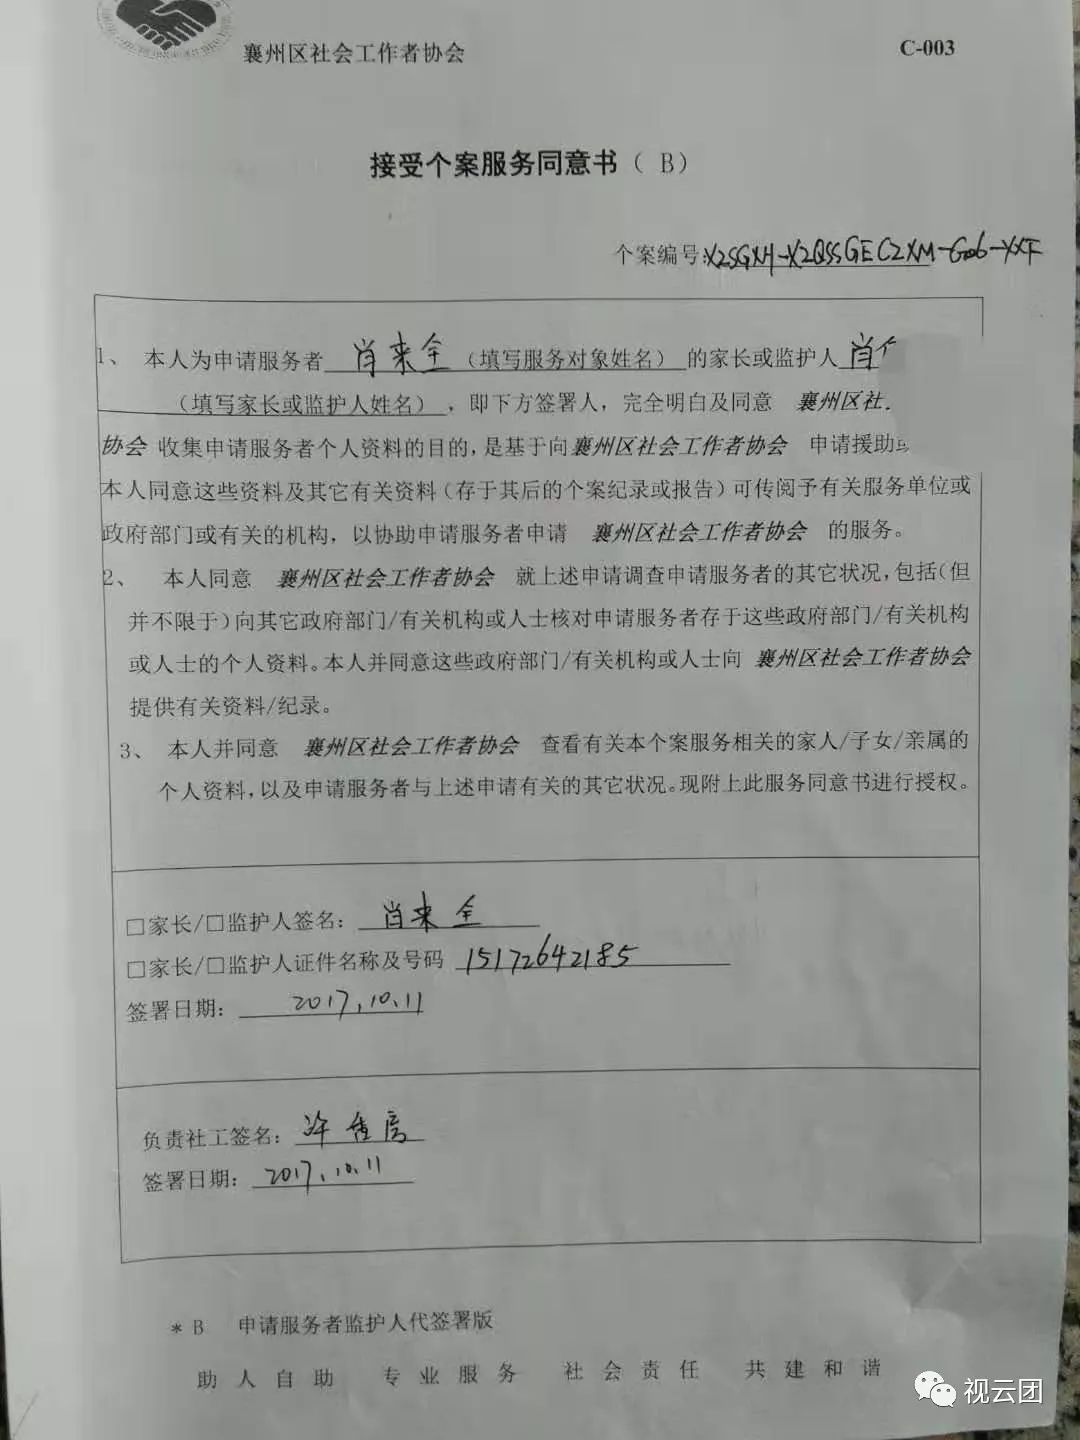 襄州区社会工作者协会
C-003
接受个案服务同意书（ B）
个案编号:XZSGXH-XZQSSGECZXM-G006-XXF
1、 本人为申请服务者 肖来全 （填写服务对象姓名） 的家长或监护人 肖
（填写家长或监护人姓名） ，即下方签署人，完全明白及同意 襄州区社
协会 收集申请服务者个人资料的目的，是基于向襄州区社会工作者协会 申请援助或
本人同意这些资料及其它有关资料（存于其后的个案纪录或报告）可传阅予有关服务单位或
政府部门或有关的机构，以协助申请服务者申请 襄州区社会工作者协会 的服务。
2、 本人同意 襄州区社会工作者协会 就上述申请调查申请服务者的其它状况，包括（但
并不限于）向其它政府部门/有关机构或人士核对申请服务者存于这些政府部门/有关机构
或人士的个人资料。本人并同意这些政府部门/有关机构或人士向 襄州区社会工作者协会
提供有关资料/纪录。
3、 本人并同意 襄州区社会工作者协会 查看有关本个案服务相关的家人/子女/亲属的
个人资料，以及申请服务者与上述申请有关的其它状况。现附上此服务同意书进行授权。
□家长/□监护人签名： 肖来全
□家长/□监护人证件名称及号码 15172642185
签署日期： 2017.10.11
负责社工签名： 许
签署日期： 2017.10.11
* B 申请服务者监护人代签署版
助人自助 专业服务 社会责任 共建和谐
视云团